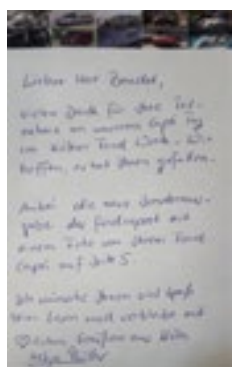 Lieber Herr
vielen Dank für Ihre Teil-
nahme an unserem Capri Tag
im Kölner Ford Werk. Wir
hoffen, es hat Ihnen gefallen.
Anbei die neue Sonderaus-
gabe der Fordreport mit
einem Foto von Ihrem Ford
Capri auf Seite 5.
Ich wünsche Ihnen viel Spaß
beim Lesen und verbleibe mit
Grüßen aus Köln